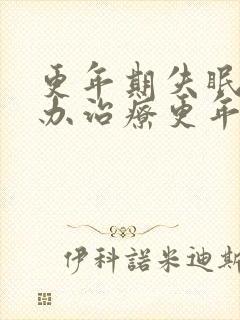 更年期失眠
办治疗更年
伊科諾米迪斯